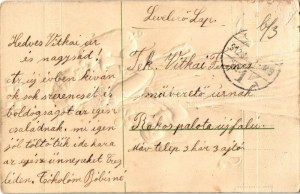 Levelező Lap.
Hedves Vitkai úr
és nagysád!
Az új évben kiván
ok sok szerencsét és
boldogságot az egész
családnak, mi igen
jól töltöttük ide haza
az egész ünnepeket
Csókolom Böbisné
Tek. Vitkai
művezető úrnak
Rákospalota újfalu
Máv. telep 3 kér 3 ajtó